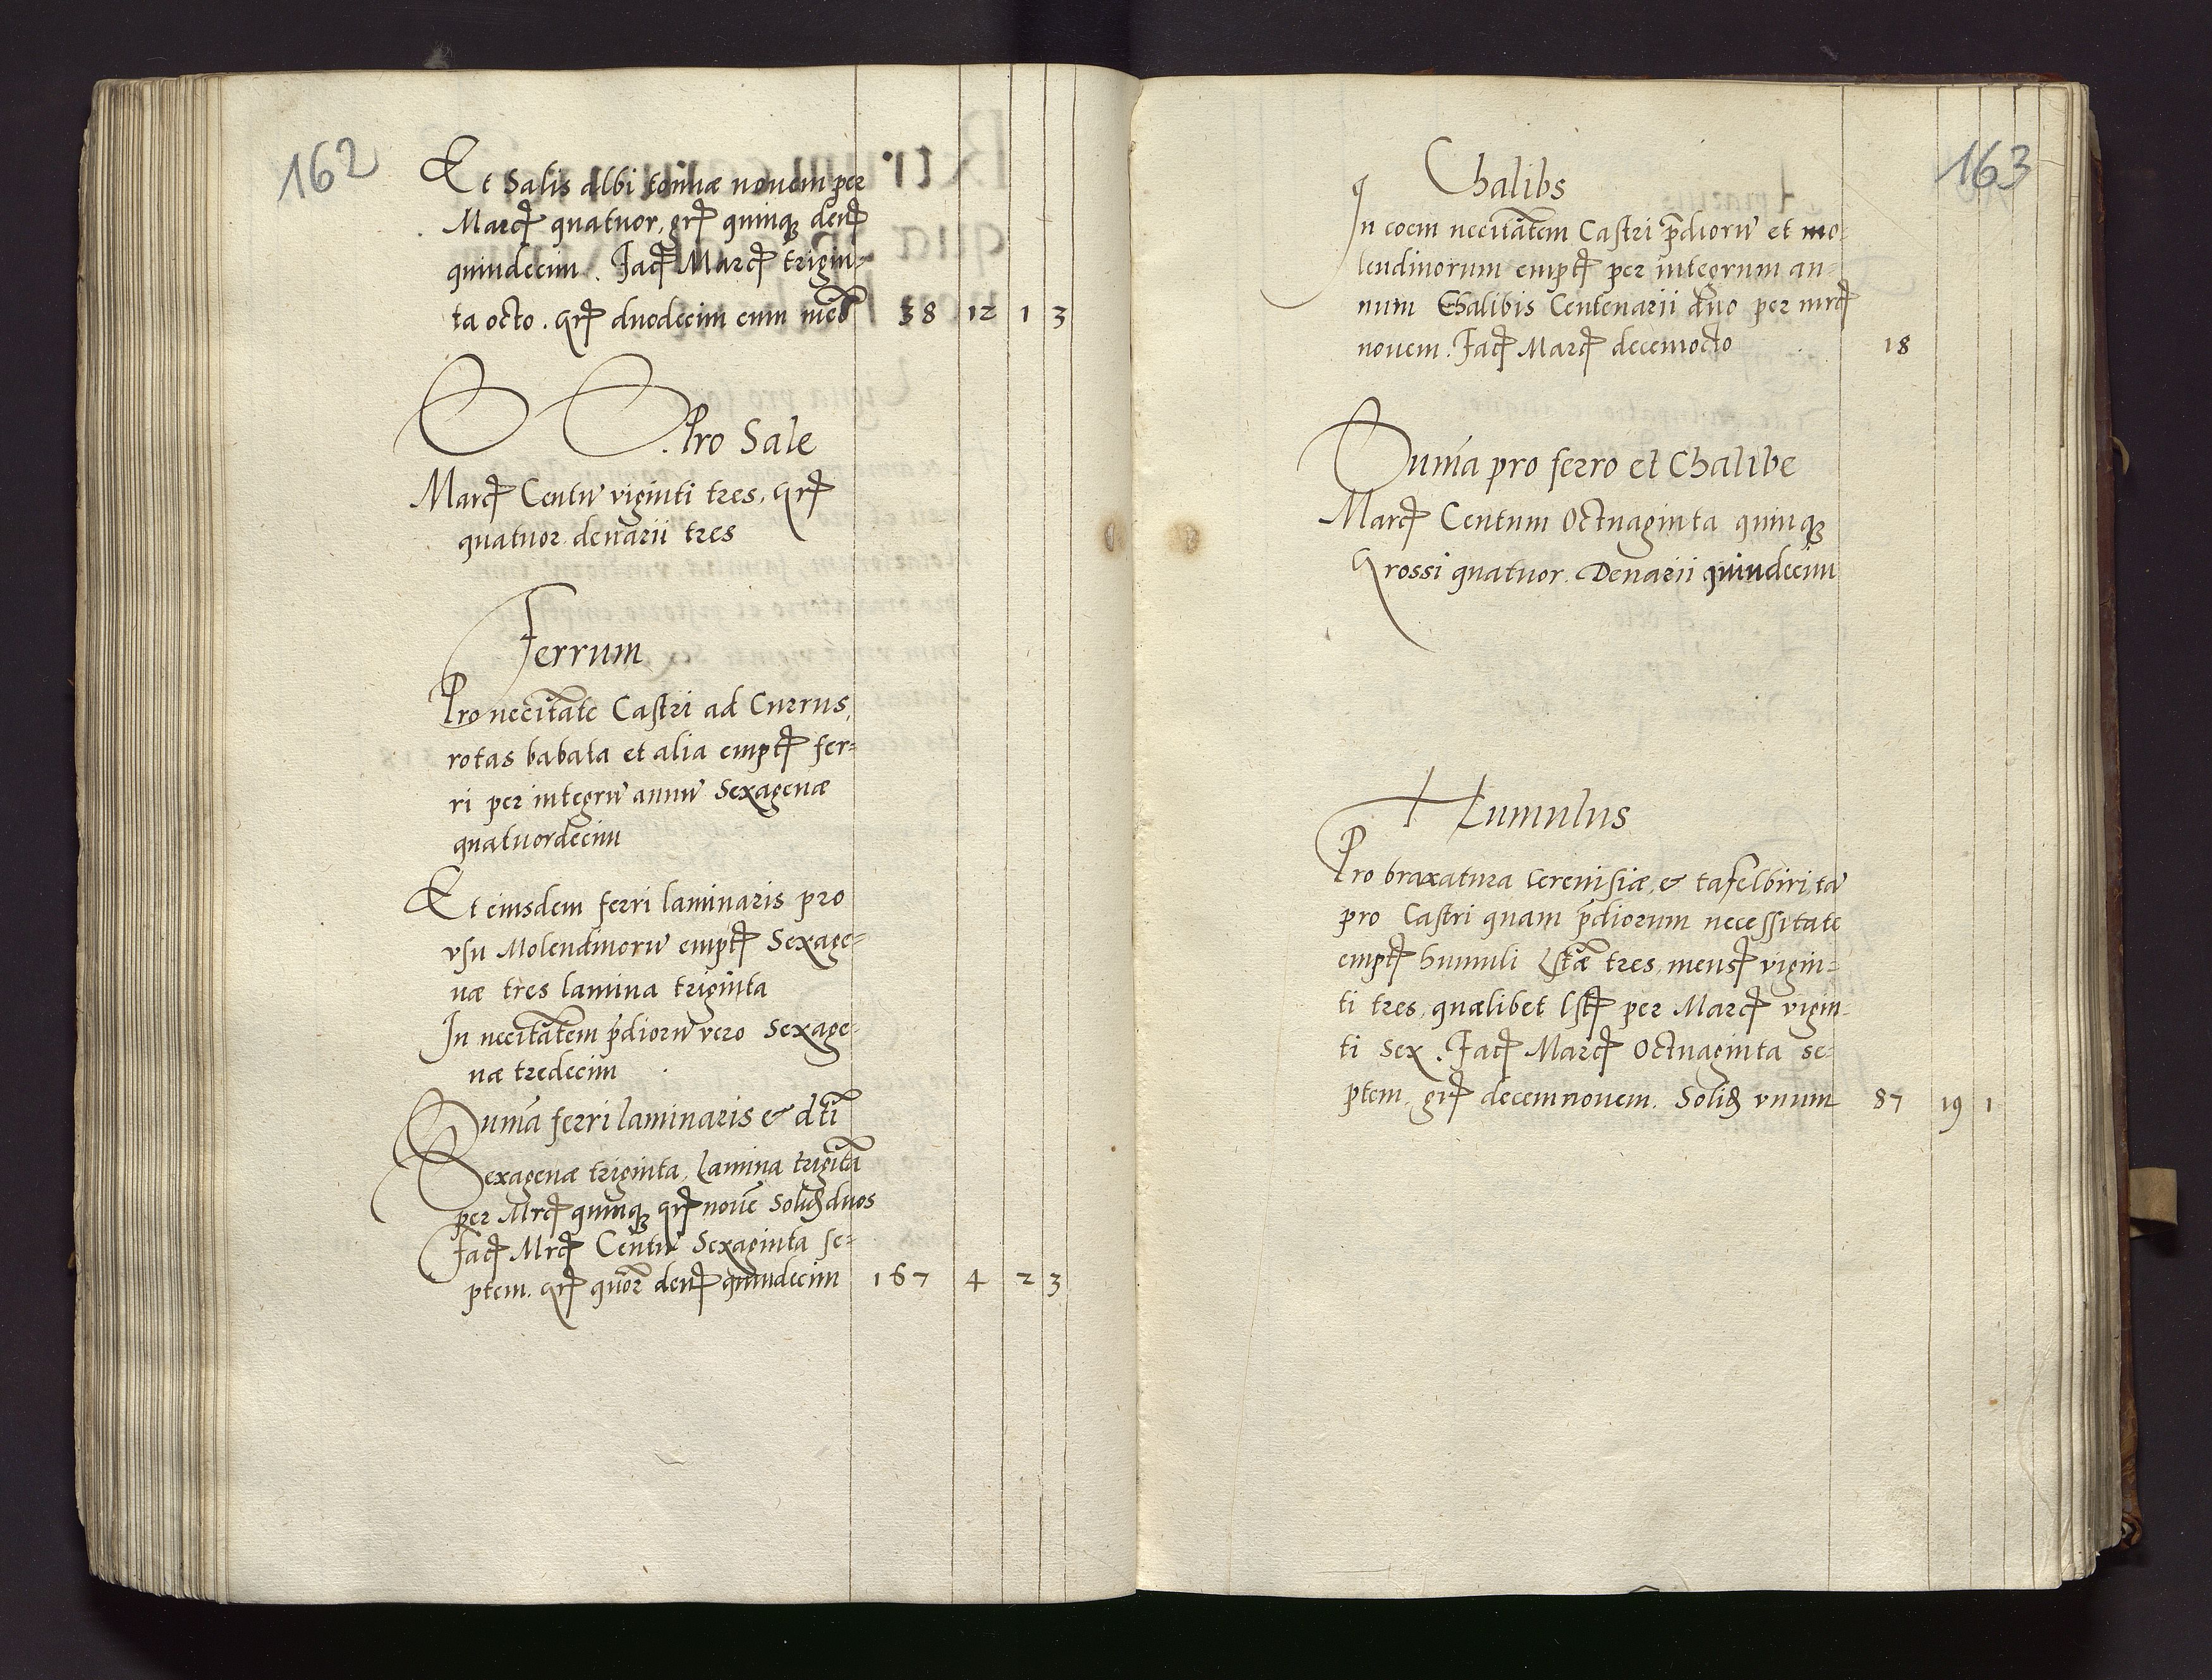 162
Et Salis albi tonnæ nouem per
Marcꝭ quatuor, grꝭ quinqꝫ denꝭ
quindecim. Facꝭ Marcꝭ trigin=
ta octo. Grꝭ duodecim cum med 38 12 1 3
S S. Pro Sale
Marcꝭ Centū viginti tres, Grꝭ
quatuor denarii tres
Ferrum
Pro necitāte Castri ad Currus,
rotas babata et alia emptꝭ fer=
ri per integrū annū Sexagenæ
quatuordecim
Et eiusdem ferri laminaris pro
vsu Molendinorū emptꝭ Sexage=
næ tres lamina triginta
In necitātem p̄diorū vero Sexage=
næ tredecim
Sum̄a ferri laminaris & dt̄i
Sexagenæ triginta, Lamina trigīta
per Mrcꝭ quinqꝫ grꝭ nouē Solidꝭ duos
Facꝭ Mrcꝭ Centū Sexaginta se=
ptem. Grꝭ quor̄ denꝭ quindecim 167 4 2 3
163
Chalibs
In eoem necitātem Castri p̄diorū et mo=
lendinorum emptꝭ per integrum an=
num Chalibis Centenarii duo per mrcꝭ
nouem. Facꝭ Marcꝭ decemocto 18
Sum̄a pro ferro et Chalibe
Marcꝭ Centum Octuaginta quinqꝫ
Grossi quatuor. Denarii quindecim
Humulus
Pro braxatura Cereuisiæ, & tafelbiri, tā
pro Castri quam p̄diorum necessitate
emptꝭ humuli Lstǣ tres, mensꝭ vigin=
ti tres, quælibet Lstꝭ per Marcꝭ vigin=
ti Sex. Facꝭ Marcꝭ Octuaginta se=
ptem, grꝭ decemnouem. Solidꝭ vnum 87 19 1